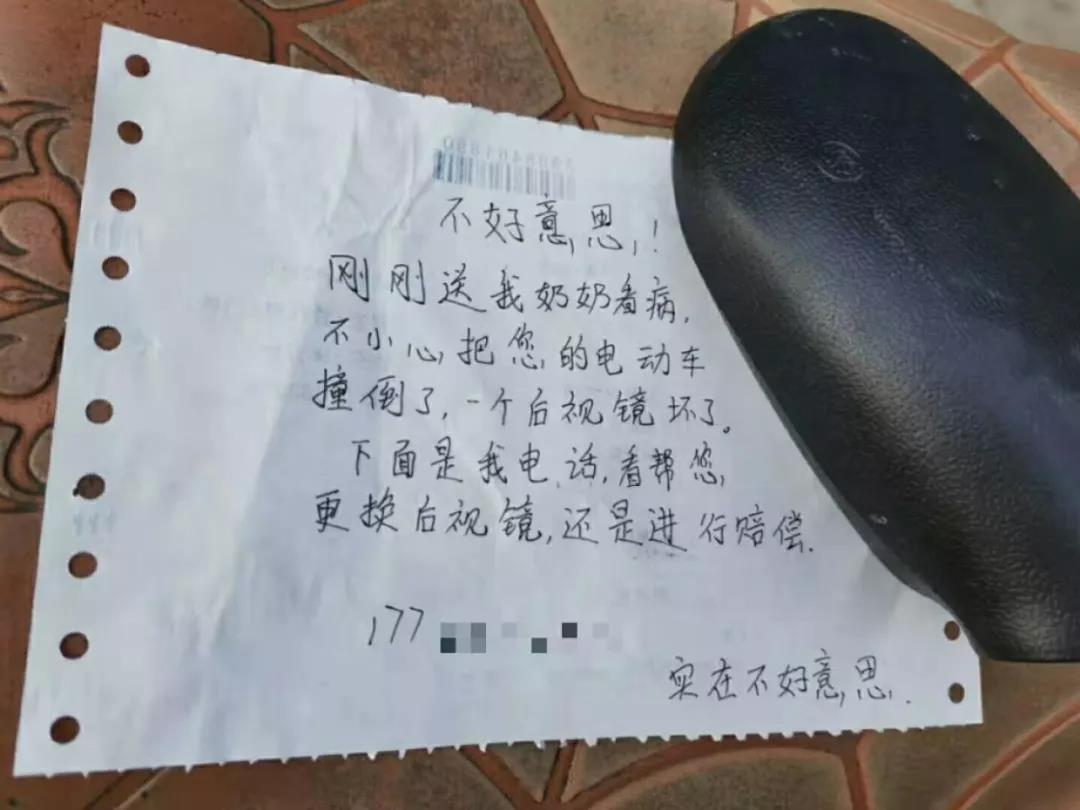 不好意思,!
刚刚送我奶奶看病,
不小心,把您的电动车
撞倒了,一个后视镜坏了。
下面是我电话,看帮您
更换后视镜,还是进行赔偿.
177
实在不好意思.